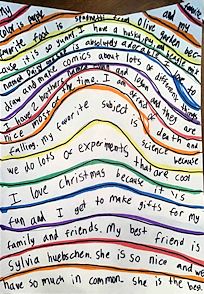 and my
favorite food is spaghetti from olive garden bec
ause it is so yummy. I have a husky
named is absolutely adorable. I like to
draw and make comics about lots of different things
I have 2 brothers named and logan and they are
nice most of the time. I am afraid of death and
falling. my favorite subject is science because
we do lots of experiments that are cool
I love Christmas because it is
fun and I get to make gifts for my
family and friends. My best friend is
Sylvia huebschen. she is so nice and we
have so much in common. she is the best